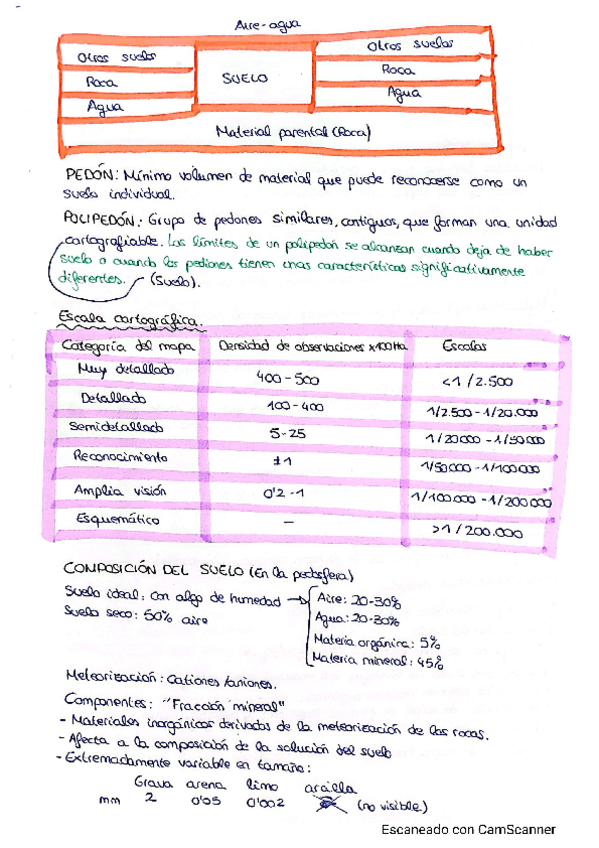 Aire-agua
Otros suelos
Roca
Agua
SUELO
Otros suelos
Roca
Agua
Material parental (Roca)
PEDÓN: Mínimo volumen de material que puede reconocerse como un
suelo individual.
POLIPEDÓN: Grupo de pedones similares, contiguos, que forman una unidad
cartografiable. Los límites de un polipedón se alcanzan cuando deja de haber
suelo o cuando los pedones tienen unas características significativamente
diferentes. (Suelo).
Escala cartográfica.
Categoría del mapa Densidad de observaciones x100Ha Escalas
Muy detallado 400-500 <1/2.500
Detallado 100-400 1/2.500-1/20.000
Semidetallado 5-25 1/20000-1/50000
Reconocimiento ±1 1/50000-1/100000
Amplia visión 0'2-1 1/100.000-1/200000
Esquemático - >1/200.000
COMPOSICIÓN DEL SUELO (En la pedosfera)
Suelo ideal: con algo de humedad → Aire: 20-30%
Suelo seco: 50% aire Agua: 20-30%
Materia orgánica: 5%
Materia mineral: 45%
Meteorización: Cationes/aniones.
Componentes: "Fracción mineral"
- Materiales inorgánicos derivados de la meteorización de las rocas.
- Afecta a la composición de la solución del suelo
- Extremadamente variable en tamaño:
Grava arena limo arcilla
mm 2 0'05 0'002 (no visible)
Escaneado con CamScanner